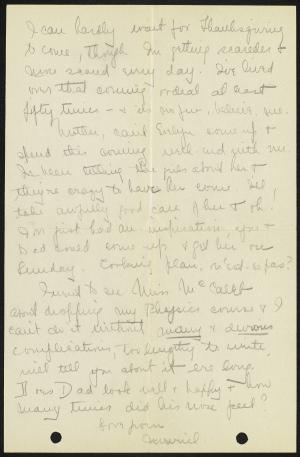 I can hardly wait for Thanksgiving
to come, though I'm getting scareder &
more scared every day. I've lived
over that coming ordeal at least
fifty times - & it's no fun, believe me.
Mother, can't Evelyn come up &
spend this coming week-end with me.
I've been telling the girls about her &
they're crazy to have her come. We'll
take awfully good care of her & oh!
I've just had an inspiration, you &
Dad could come up & get her on
Sunday. Corking plan, n'est-ce pas?
I went to see Miss McCaleb
about dropping my Physics course & I
can't do it without many & devious
complications, too lengthy to write,
will tell you about it ere long.
Does Dad look well & happy & how
many times did his nose peel?
Love from